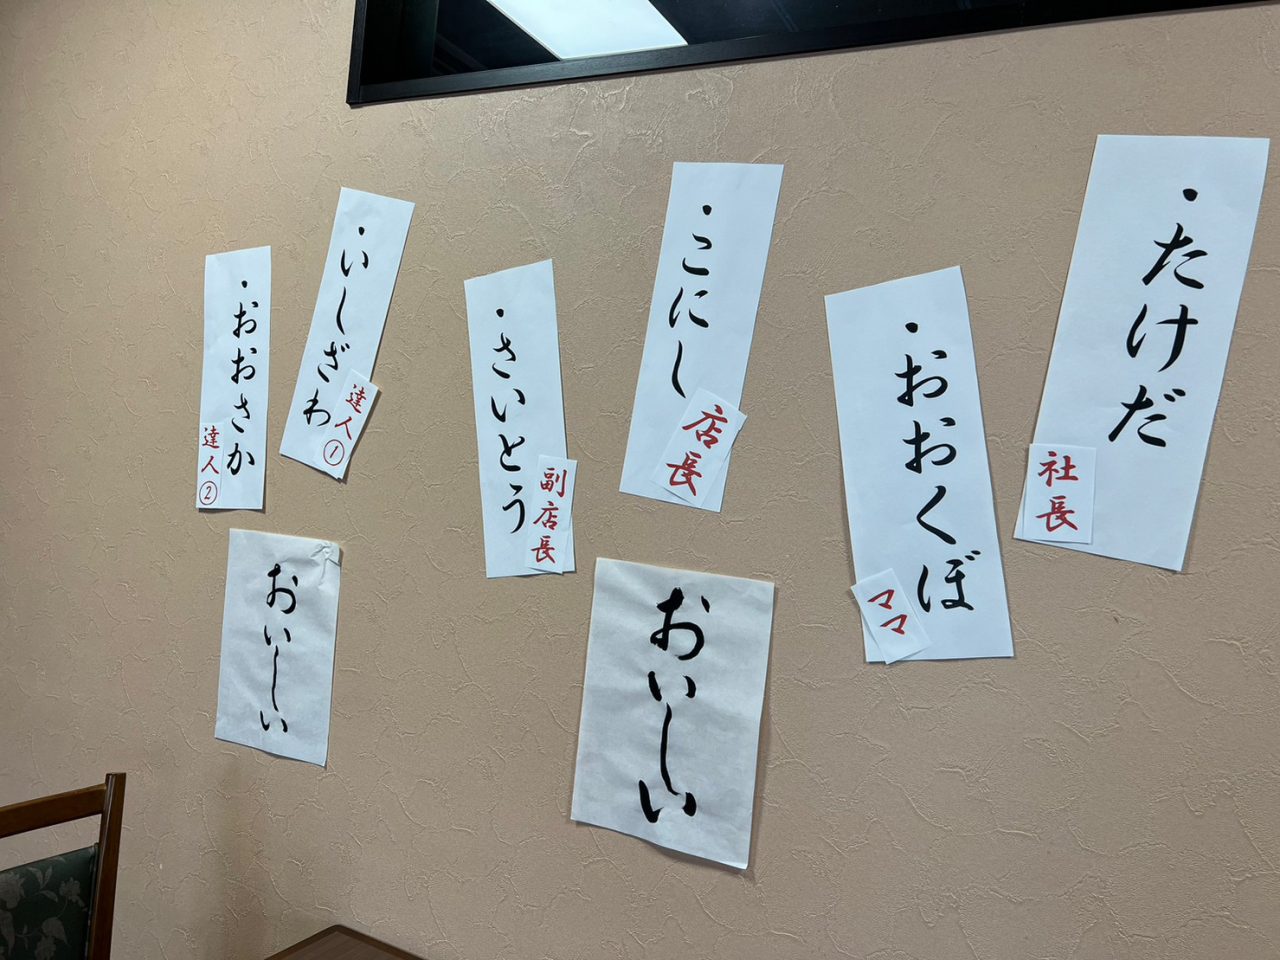 ・たけだ
社長
・おおくぼ
ママ
・こにし
店長
・さいとう
副店長
・いしざわ
達人①
・おおさか
達人②
おいしい
おいしい